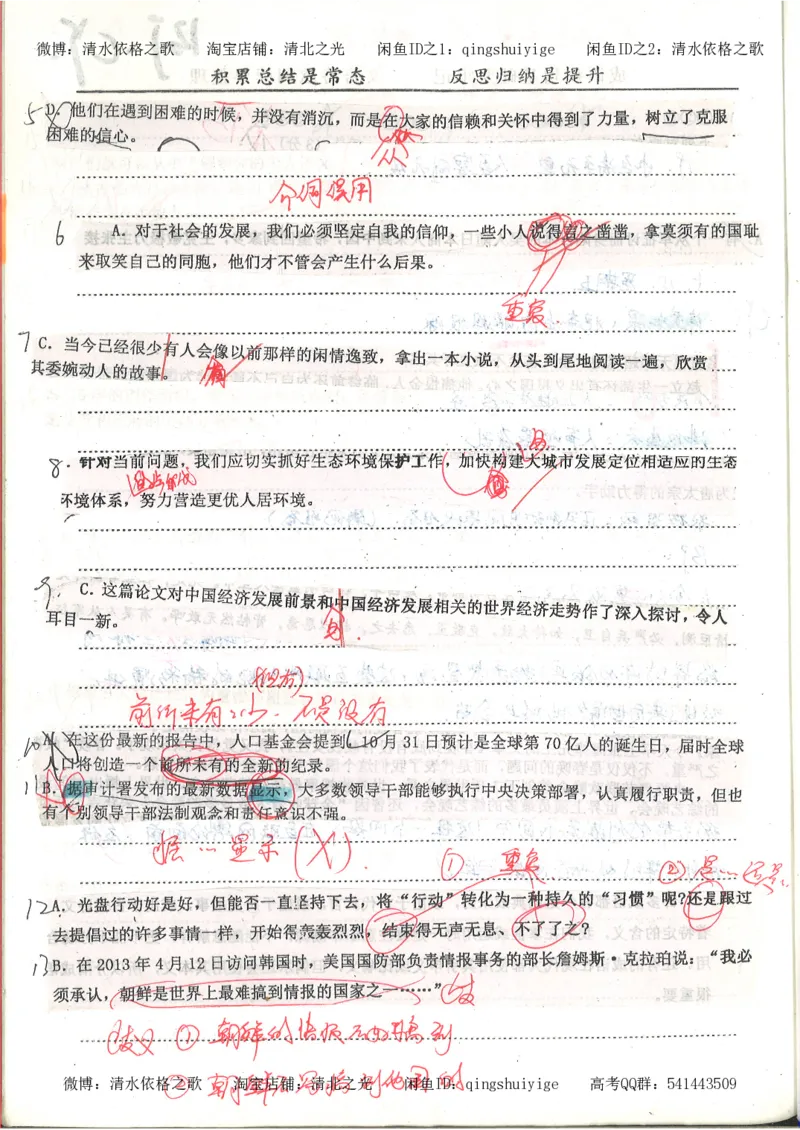 微博：清水依格之歌 淘宝店铺：清北之光 闲鱼ID之1：qingshuiyige 闲鱼ID之2：清水依格之歌
积累总结是常态 反思归纳是提升
5 D．他们在遇到困难的时候，并没有消沉，而是在大家的信赖和关怀中得到了力量，树立了克服
困难的信心。
从
介词误用
6 A．对于社会的发展，我们必须坚定自我的信仰，一些小人说得言之凿凿，拿莫须有的国耻
来取笑自己的同胞，他们才不管会产生什么后果。
重复
7 C．当今已经很少有人会像以前那样的闲情逸致，拿出一本小说，从头到尾地阅读一遍，欣赏
其委婉动人的故事。
8．针对当前问题，我们应切实抓好生态环境保护工作，加快构建大城市发展定位相适应的生态
环境体系，努力营造更优人居环境。
9. C．这篇论文对中国经济发展前景和中国经济发展相关的世界经济走势作了深入探讨，令人
耳目一新。
前所未有 不是没有
10 A．在这份最新的报告中，人口基金会提到 10月31日预计是全球第70亿人的诞生日，届时全球
人口将创造一个前所未有的全新的纪录。
11 B．据审计署发布的最新数据显示，大多数领导干部能够执行中央决策部署，认真履行职责，但也
有个别领导干部法制观念和责任意识不强。
据…显示（X）．
① 重复 ② 是…还是…
12 A．光盘行动好是好，但能否一直坚持下去，将“行动”转化为一种持久的“习惯”呢？还是跟过
去提倡过的许多事情一样，开始得轰轰烈烈，结束得无声无息、不了了之？
13 B．在2013年4月12日访问韩国时，美国国防部负责情报事务的部长詹姆斯·克拉珀说：“我必
须承认，朝鲜是世界上最难搞到情报的国家之一……”
歧义 ① 朝鲜的情报
微博：清水依格之歌 淘宝店铺：清北之光 闲鱼ID：qingshuiyige 高考QQ群：541443509
② 朝鲜